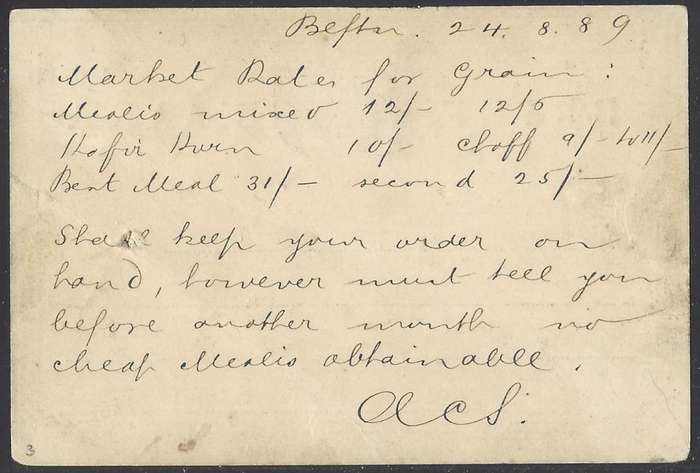 Bfltn. 24. 8. 89
Market Rates for Grain:
Mealis mixed 12/- 12/6
Kafir Korn 10/- chaff 9/- to 11/-
Best Meal 31/- second 25/-
Shall keep your order on
hand, however must tell you
before another month no
cheap Mealis obtainable.
ACS.
3